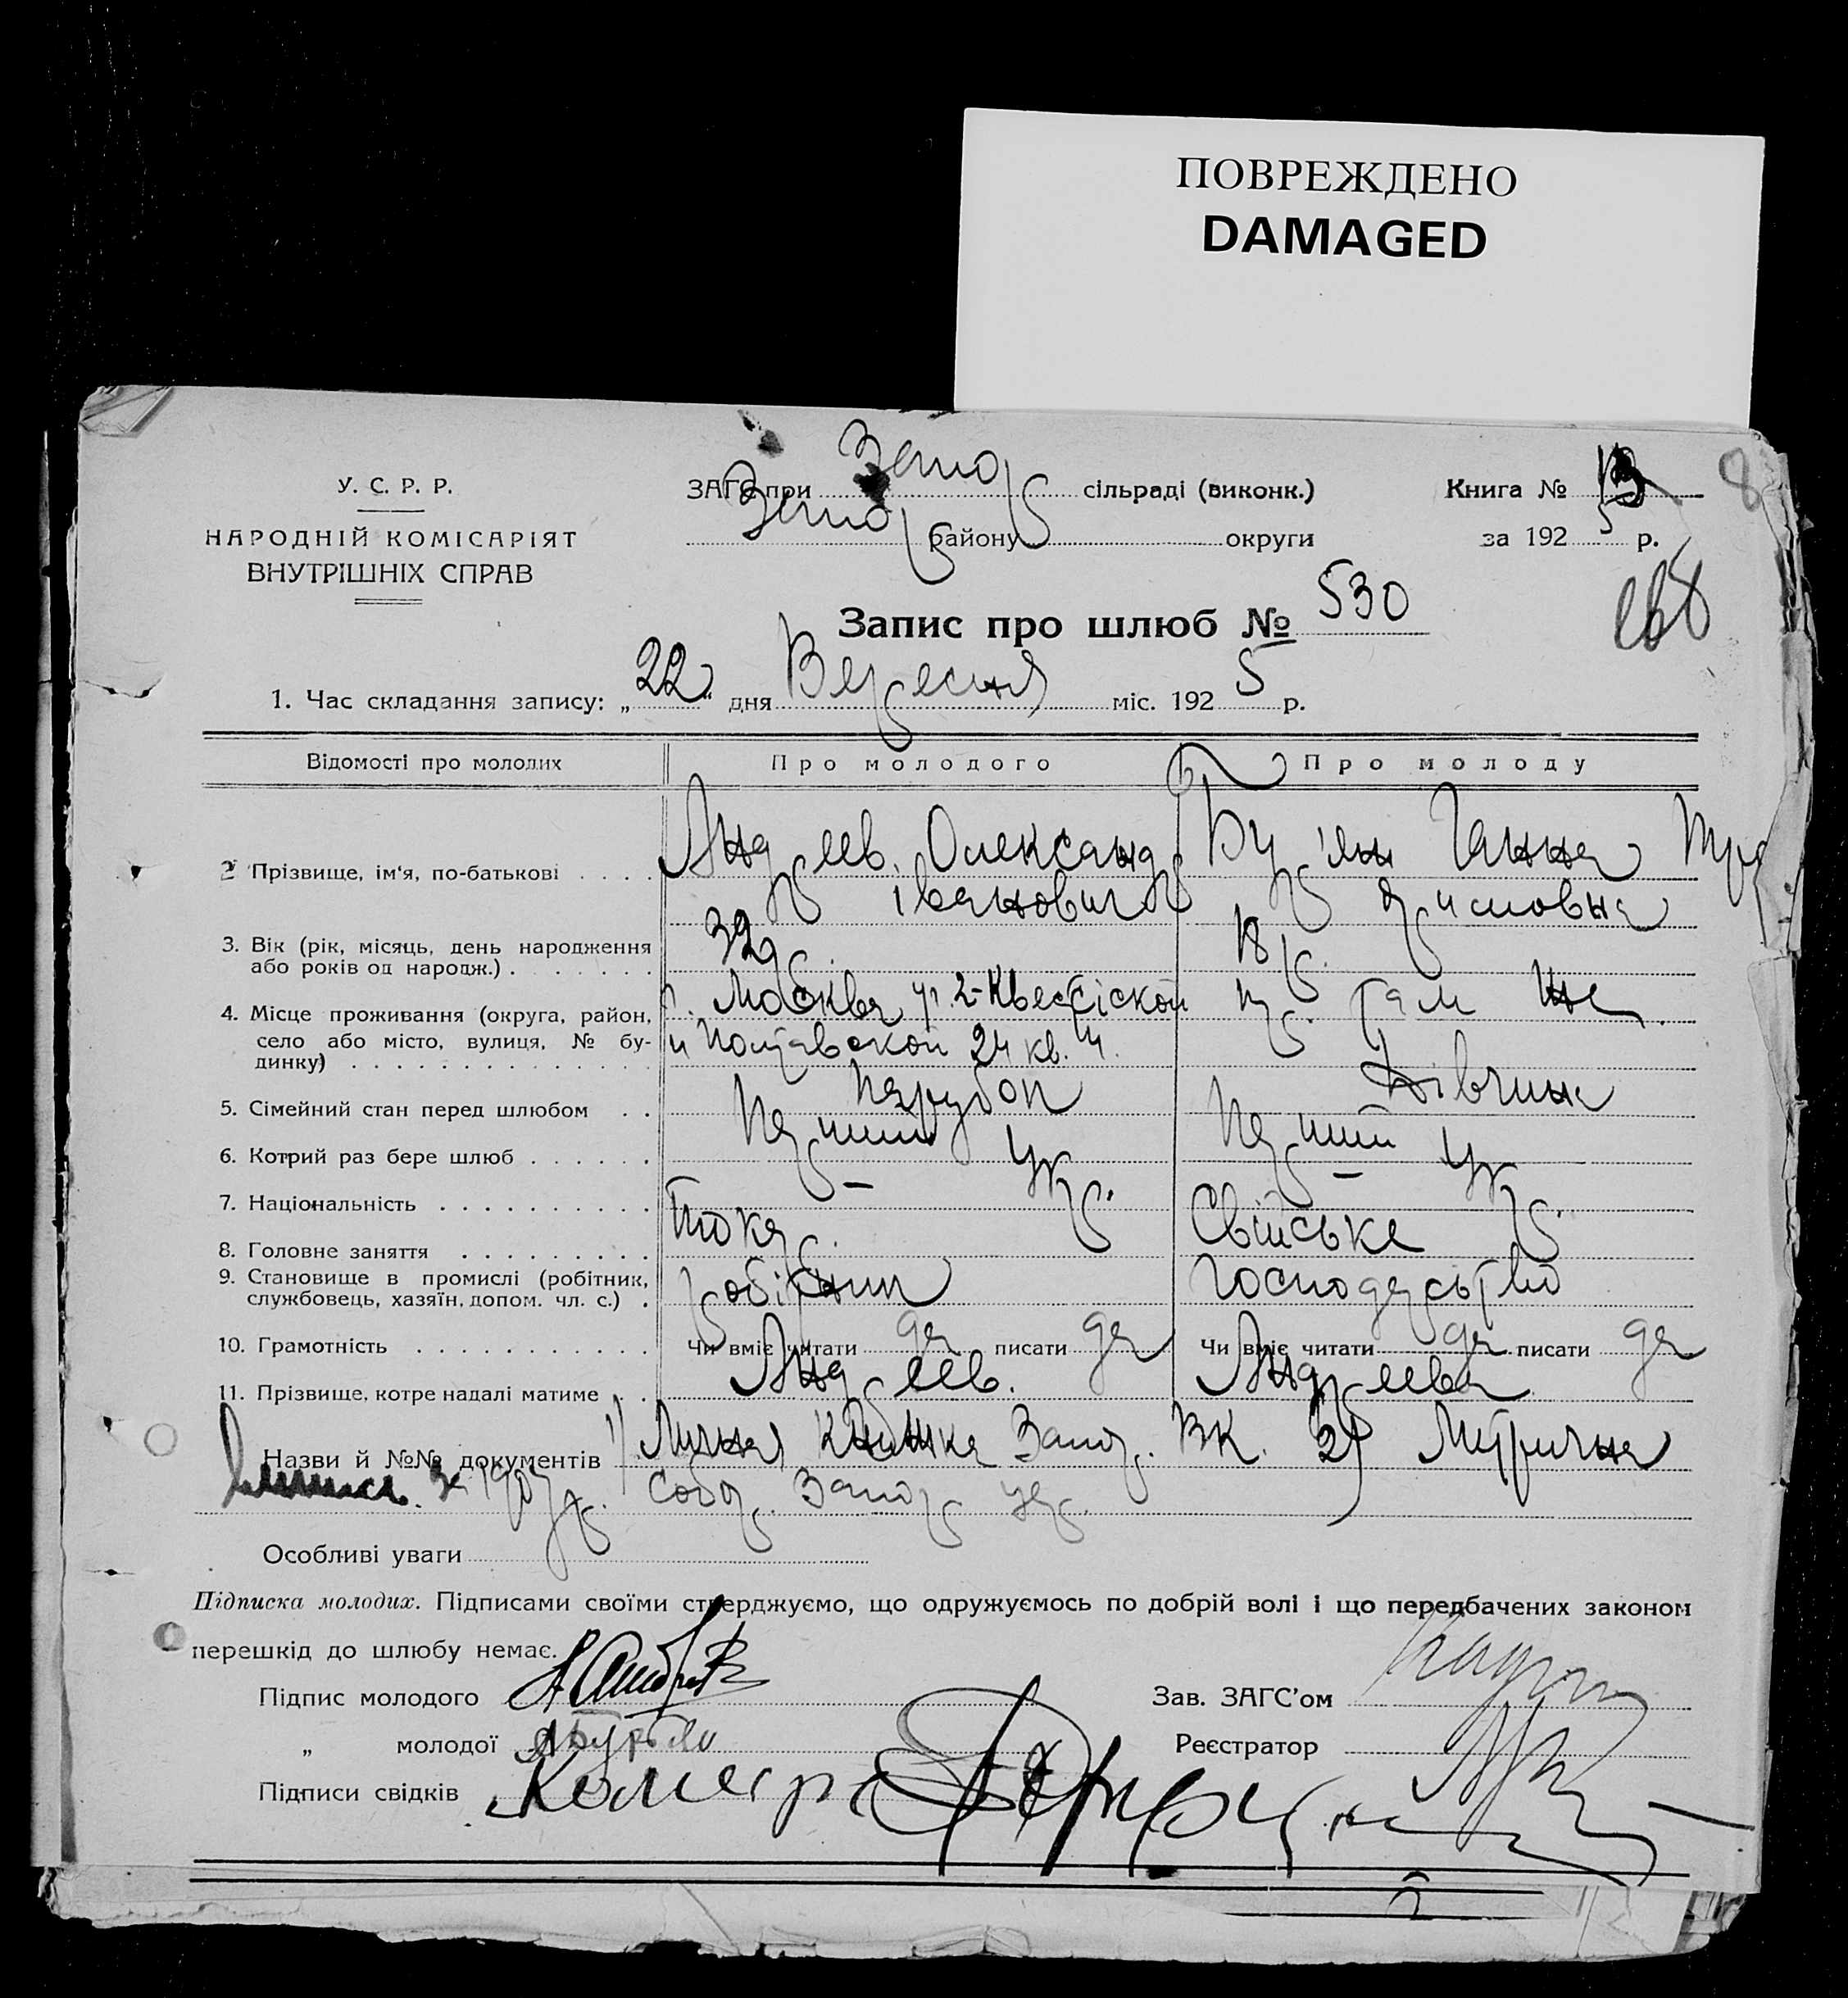 ПОВРЕЖДЕНО
DAMAGED
У. С. Р. Р.
НАРОДНІЙ КОМІСАРІЯТ
ВНУТРІШНІХ СПРАВ
ЗАГС при Запор сільраді (виконк.)
Запор району округи
Книга № 13
8
за 1925 р.
Запис про шлюб № 530
1. Час складання запису: „22" дня Вересня міс. 1925 р.
Відомості про молодих Про молодого Про молоду
2 Прізвище, ім'я, по-батькові . . . . Андреев Олександр Бур'ян Ганна
Іванович
3. Вік (рік, місяць, день народження
або років од народж.) . . . . . . . 32 р. 18 р.
4. Місце проживання (округа, район,
село або місто, вулиця, № бу-
динку) . . . . . . . . . . . . . .
г. Москва там же
и Полтавской 24 кв. 4.
5. Сімейний стан перед шлюбом . . Парубок Дівчина
6. Котрий раз бере шлюб . . . . . . Перший Перший
7. Національність . . . . . . . . . . Укр. Укр.
8. Головне заняття . . . . . . . . . Токар. Свійське
9. Становище в промислі (робітник,
службовець, хазяїн, допом. чл. с.) . робітник господарство
10. Грамотність . . . . . . . . . . . Чи вміє читати да писати да Чи вміє читати да писати да
11. Прізвище, котре надалі матиме . . Андреев. Андреева
Назви й №№ документів 1) Личная книжка Запор. ВК. 2) Метрична
за 1907 р. Собор. Запор
Особливі уваги
Підписка молодих. Підписами своїми стверджуємо, що одружуємось по добрій волі і що передбачених законом
перешкід до шлюбу немає.
Підпис молодого Зав. ЗАГС'ом
„ молодої Реєстратор
Підписи свідків